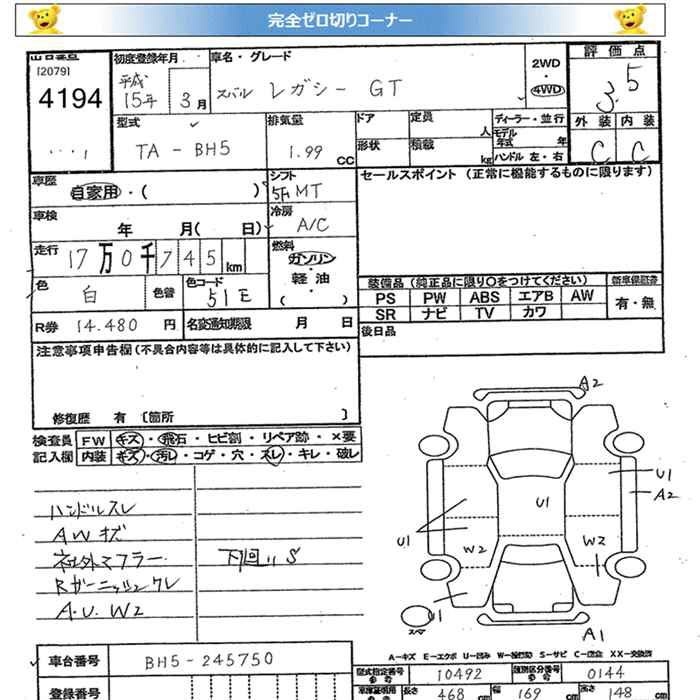 完全ゼロ切りコーナー
出品番号
[2079]
4194
初度登録年月
平成
15年 3月
車名・グレード
スバル レガシー GT
2WD
・
4WD
評価点
3.5
外装 内装
C C
型式
TA - BH5
排気量
1.99 CC
ドア
形状
定員 人
積載 kg
ディーラー・並行
モデル年式 年
ハンドル 左・右
車歴
自家用・( )
シフト
5F MT
車検
年 月( 日)
冷房
A/C
走行
17万0千745 km
燃料
ガソリン
軽油
( )
色
白
色替
色コード
51E
R券 14.480 円
名変通知期限 月 日
セールスポイント (正常に機能するものに限ります)
装備品 (純正品に限り○をつけてください)
PS PW ABS エアB AW
SR ナビ TV カワ
新車保証書
有・無
後日品
注意事項申告欄(不具合内容等は具体的に記入して下さい)
修復歴 有 〔箇所 〕
検査員 FW キズ・飛石・ヒビ割・リペア跡・×要
記入欄 内装 キズ・汚レ・コゲ・穴・スレ・キレ・破レ
ハンドルスレ
AWキズ
社外マフラー 下回リS
Rガーニッシュワレ
A.U.W2
A2
U1
A2
U1
U1
W2
W2
U1
スペア
A1
A-キズ E-エクボ U-凹み W-補修跡 S-サビ C-腐食 XX-交換済
車台番号 BH5-245750
登録番号
型式指定番号 10492
類別区分番号 0144
長さ 468 cm 幅 169 cm 高さ 148 cm